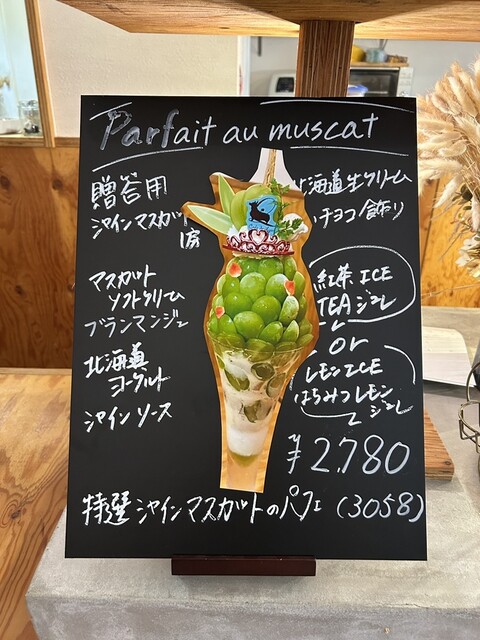 Parfait au muscat
贈答用
シャインマスカット
1房
マスカット
ソフトクリーム
ブランマンジェ
北海道
ヨーグルト
シャインソース
北海道生クリーム
チョコ飾り
紅茶 ICE
TEAジュレ
or
レモンICE
はちみつレモン
ジュレ
¥2.780
特選シャインマスカットのパフェ (3058)